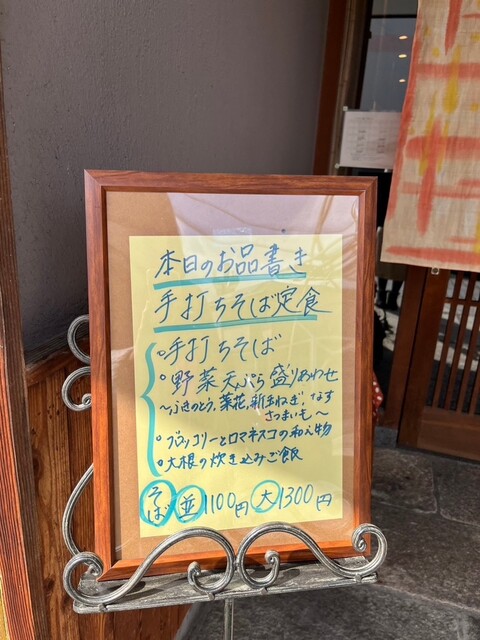 本日のお品書き
手打ちそば定食
・手打ちそば
・野菜天ぷら盛りあわせ
〜ふきのとう、菜花、新玉ねぎ、なす
さつまいも〜
・ブロッコリーとロマネスコの和え物
・大根の炊き込みご飯
そば 並 1100円 大 1300円